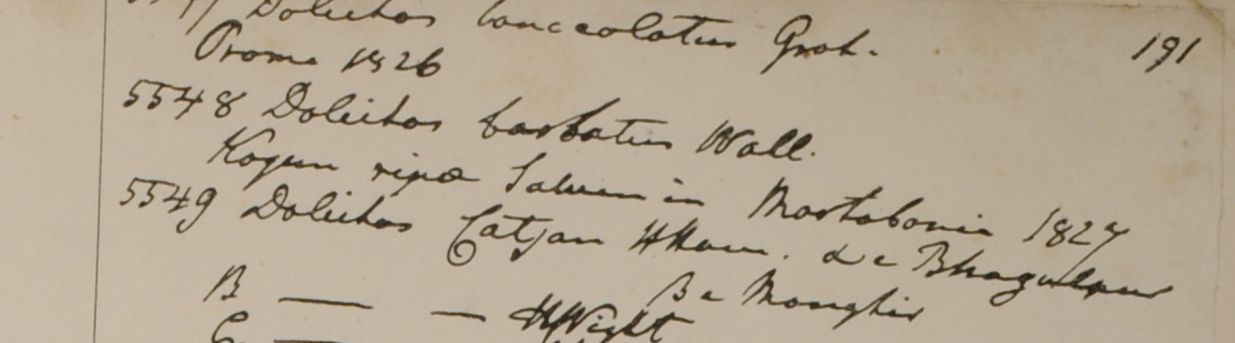 Dolichos lanceolatus Grah. 191
Prome 1826
5548 Dolichos barbatus Wall.
Kogun ripa Saluen in Martabania 1827
5549 Dolichos Catjan HHam. a e Bhagulpur
B e Monghir
B — — HWight
C —